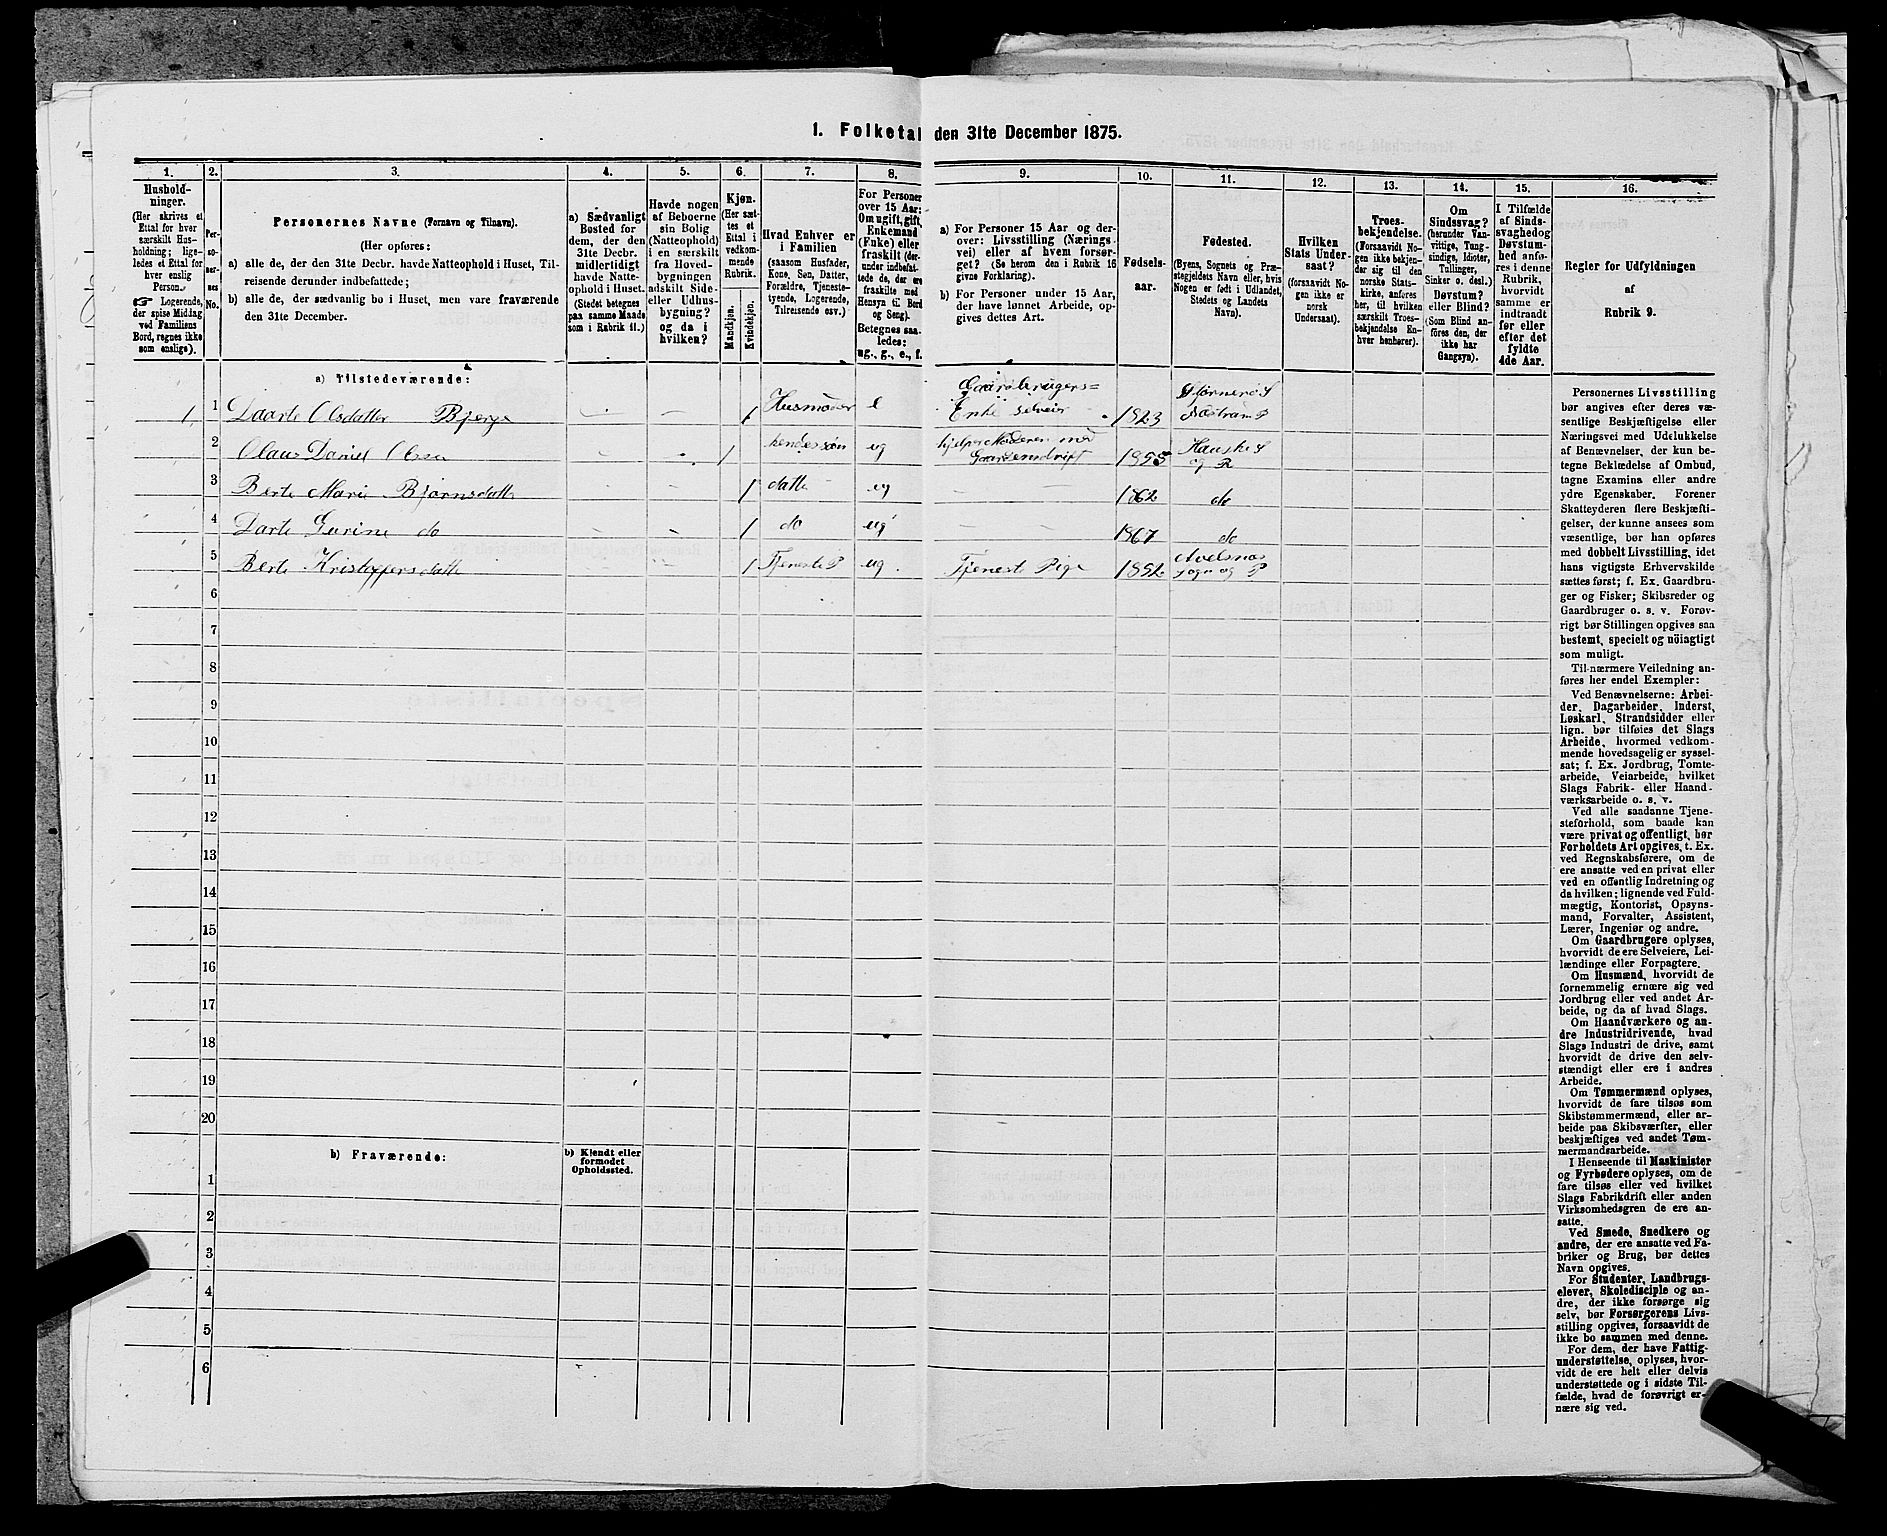 1. Folketal den 31te December 1875.
1. 2. 3. 4. 5. 6. 7. 8. 9. 10. 11. 12. 13. 14. 15. 16.
Hushold-
ninger.
(Her skrives et
Ettal for hver
særskilt Hus-
holdning; lige-
ledes et Ettal for
hver enslig
Person.
☞ Logerende,
der spise Middag
ved Familiens
Bord, regnes ikke
som enslige).
Per-
so-
ner-
nes
No.
Personernes Navne (Fornavn og Tilnavn).
(Her opføres:
a) alle de, der den 31te Decbr. havde Natteophold i Huset, Til-
reisende derunder indbefattede;
b) alle de, der sædvanlig bo i Huset, men vare fraværende
den 31te December.
a) Sædvanligt
Bosted for
dem, der den
31te Decbr.
midlertidigt
havde Natte-
ophold i Huset.
(Stedet betegnes
paa samme Maade
som i Rubrik 11.)
Havde nogen
af Beboerne
sin Bolig
(Natteophold)
i en særskilt
fra Hoved-
bygningen
adskilt Side-
eller Udhus-
bygning?
og da i
hvilken?
Kjøn.
(Her sæt-
tes et
Ettal i
vedkom-
mende
Rubrik.
Mandkjøn.
Kvindekjøn.
Hvad Enhver er
i Familien
(saasom Husfader,
Kone, Søn, Datter,
Forældre, Tjeneste-
tyende, Logerende,
Tilreisende osv.)
For Personer
over 15 Aar:
Om ugift, gift,
Enkemand
(Enke) eller
fraskilt (der-
under indbefat-
tede de, der ere
fraskilte med
Hensyn til Bord
og Seng).
Betegnes saa-
ledes:
ug., g., e., f.
a) For Personer 15 Aar og der-
over: Livsstilling (Nærings-
vei) eller af hvem forsør-
get? (Se herom den i Rubrik 16
givne Forklaring).
b) For Personer under 15 Aar,
der have lønnet Arbeide, op-
gives dettes Art.
Fødsels-
aar.
Fødested.
(Byens, Sognets og Præ-
stegjeldets Navn eller, hvis
Nogen er født i Udlandet,
Stedets og Landets
Navn).
Hvilken
Stats Under-
saat?
(forsaavidt No-
gen ikke er
norsk
Undersaat).
Troes-
bekjendelse.
(Forsaavidt No-
gen ikke bekjen-
der sig til den
norske Stats-
kirke, anføres
her, til hvilken
særskilt Troes-
bekjendelse En-
hver henhører).
Om
Sindssvag?
(herunder Van-
vittige, Tung-
sindige, Idioter,
Tullinger,
Sinker o. desl.)
Døvstum?
eller Blind?
(Som Blind an-
føres den, der
ikke har
Gangsyn).
I Tilfælde
af Sinds-
svaghed og
Døvstum-
hed anfø-
res i denne
Rubrik,
hvorvidt
samme er
indtraadt
før eller
efter det
fyldte
4de Aar.
Regler for Udfyldningen
af
Rubrik 9.
a) Tilstedeværende:
1 1 Daarte Olsdatter Bjerge 1 Husmoder e Gaardbrugers= Enke selveier 1823
2 Olaus Daniel Olsen 1 hendes søn ug hjelper Moderen med Gaardensdrift 1855 Hauske S og P
3 Berte Marie Bjørnsdatte 1 datte ug 1862 do
4 Darte Gurine do 1 do ug 1867 do
5 Berte Kristoffersdatte 1 Tjeneste P ug Tjeneste Pige 1852 sogn og P
6
7
8
9
10
11
12
13
14
15
16
17
18
19
20
b) Fraværende:
b) Kjendt eller
formodet
Opholdssted.
1
2
3
4
5
6
Personernes Livsstilling
bør angives efter deres væ-
sentlige Beskjæftigelse eller
Næringsvei med Udelukkelse
af Benævnelser, der kun be-
tegne Beklædelse af Ombud,
tagne Examina eller andre
ydre Egenskaber. Forener
Skatteyderen flere Beskjæfti-
gelser, der kunne ansees som
væsentlige, bør han opføres
med dobbelt Livsstilling, idet
hans vigtigste Erhvervskilde
sættes først; f. Ex. Gaardbru-
ger og Fisker; Skibsreder og
Gaardbruger o. s. v. Forøv-
rigt bør Stillingen opgives saa
bestemt, specielt og nöiagtigt
som muligt.
Til nærmere Veiledning an-
føres her endel Exempler:
Ved Benævnelserne: Arbei-
der, Dagarbeider, Inderst,
Løskarl, Strandsidder eller
lign. bør tilføies det Slags
Arbeide, hvormed vedkom-
mende hovedsagelig er syssel-
sat; f. Ex. Jordbrug, Tomte-
arbeide, Veiarbeide, hvilket
Slags Fabrik- eller Haand-
værksarbeide o. s. v.
Ved alle saadanne Tjene-
steforhold, som baade kan
være privat og offentligt, bør
Forholdets Art opgives, t. Ex.
ved Regnskabsførere, om de
ere ansatte ved en privat eller
ved en offentlig Indretning og
da hvilken; lignende ved Fuld-
mægtig, Kontorist, Opsyns-
mand, Forvalter, Assistent,
Lærer, Ingeniør og andre.
Om Gaardbrugere oplyses,
hvorvidt de ere Selveiere, Lei-
lændinge eller Forpagtere.
Om Husmænd, hvorvidt de
fornemmelig ernære sig ved
Jordbrug eller ved andet Ar-
beide, og da af hvad Slags.
Om Haandværkere og an-
dre Industridrivende, hvad
Slags Industri de drive, samt
hvorvidt de drive den selv-
stændigt eller ere i andres
Arbeide.
Om Tømmermænd oplyses,
hvorvidt de fare tilsøs som
Skibstømmermænd, eller ar-
beide paa Skibsværfter, eller
beskjæftiges ved andet Tøm-
mermandsarbeide.
I Henseende til Maskinister
og Fyrbødere oplyses, om de
fare tilsøs eller ved hvilket
Slags Fabrikdrift eller anden
Virksomhedsgren de ere an-
satte.
Ved Smede, Snedkere og
andre, der ere ansatte ved Fa-
briker og Brug, bør dettes
Navn opgives.
For Studenter, Landbrugs-
elever, Skoledisciple og an-
dre, der ikke forsørge sig
selv, bør Forsørgerens Livs-
stilling opgives, forsaavidt de
ikke bo sammen med denne.
For dem, der have Fattig-
understøttelse, oplyses, hvor-
vidt de ere helt eller delvis
understøttede og i sidste Til-
fælde, hvad de forøvrigt er-
nære sig ved.